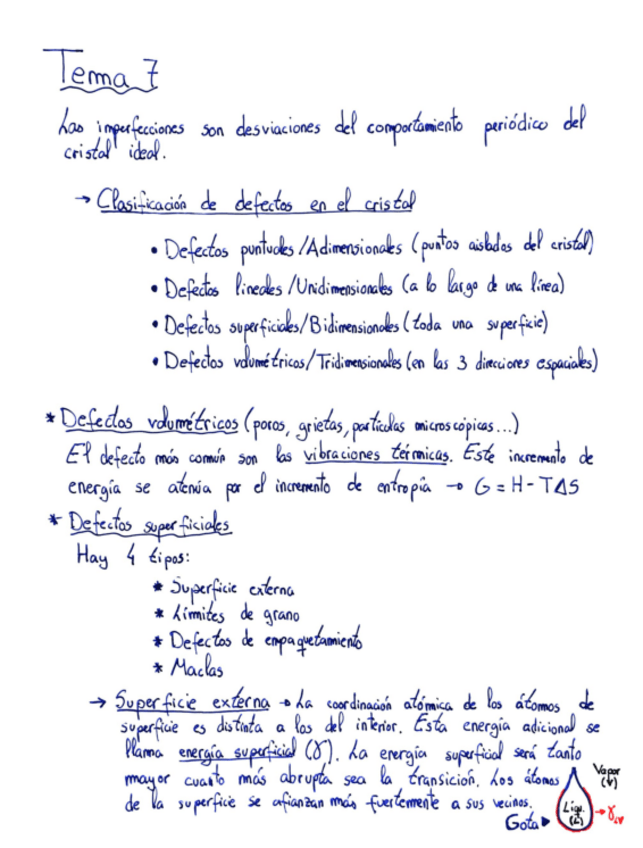 Tema 7
Las imperfecciones son desviaciones del comportamiento periódico del
cristal ideal.
→ Clasificación de defectos en el cristal
• Defectos puntuales/Adimensionales (puntos aislados del cristal)
• Defectos lineales/Unidimensionales (a lo largo de una línea)
• Defectos superficiales/Bidimensionales (toda una superficie)
• Defectos volumétricos/Tridimensionales (en las 3 direcciones espaciales)
* Defectos volumétricos (poros, grietas, partículas microscópicas...)
El defecto más común son las vibraciones térmicas. Este incremento de
energía se atenúa por el incremento de entropía → G = H - TΔS
* Defectos superficiales
Hay 4 tipos:
* Superficie externa
* Límites de grano
* Defectos de empaquetamiento
* Maclas
→ Superficie externa → La coordinación atómica de los átomos de
superficie es distinta a los del interior. Esta energía adicional se
llama energía superficial (γ). La energía superficial será tanto
mayor cuanto más abrupta sea la transición. Los átomos
de la superficie se afianzan más fuertemente a sus vecinos.
Vapor
(V)
Líqu.
(L)
→ γLV
Gota